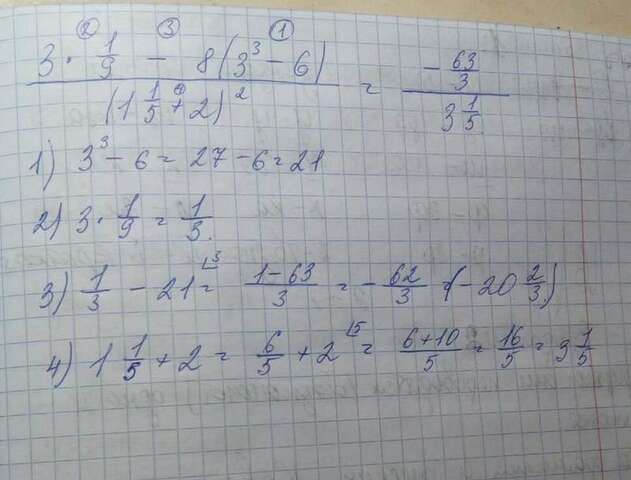 ② ③ ①
(3 · 1/9 - 8(3³ - 6)) / (1 1/5 + 2)² = (- 63/3) / (3 1/5)
1) 3³ - 6 = 27 - 6 = 21
2) 3 · 1/9 = 1/3.
3) 1/3 - 21 ⌊3 = (1 - 63)/3 = - 62/3 = (- 20 2/3)
4) 1 1/5 + 2 = 6/5 + 2 ⌊5 = (6 + 10)/5 = 16/5 = 3 1/5